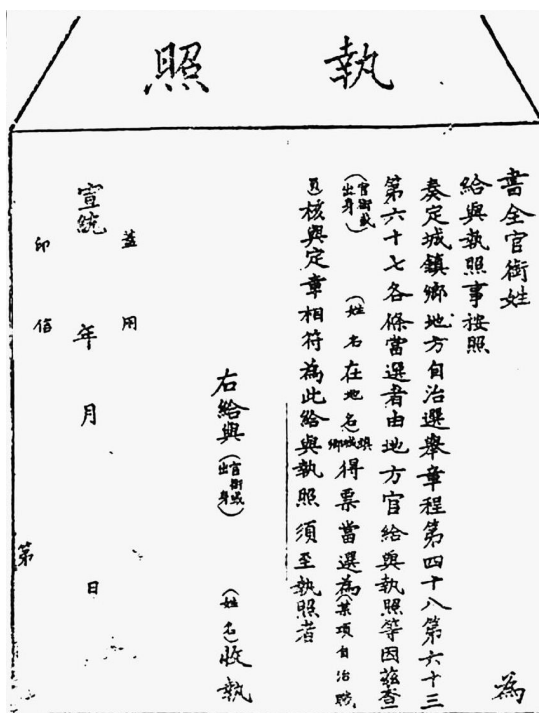 執照
書全官銜姓 為
給與執照事按照
奏定城鎮鄉地方自治選舉章程第四十八第六十三
第六十七各條當選者由地方官給與執照等因茲查
(官銜或出身)(姓名)在地名(鎮城鄉)得票當選為(某項自治職
員)核與定章相符為此給與執照須至執照者
右給與(官銜或出身)(姓名)收執
蓋用
宣統 年 月 日
印信
第